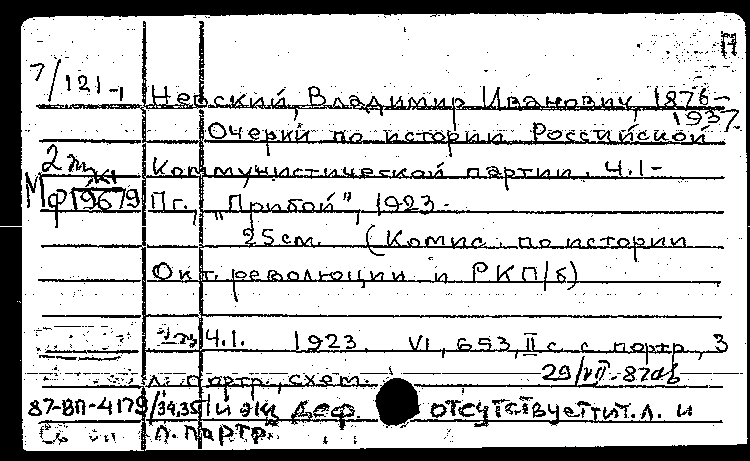 П
7/121-1 Невский, Владимир Иванович, 1876-
1937.
Очерки по истории Российской
2 экз. Коммунистической партии. Ч.1-
Мф 19679 Пг., „Прибой", 1923-
25см. (Комис. по истории
Окт. революции и РКП/б)
Ч.1. 1923. VI, 653, II с. с портр., 3
л. портр., схем. 29/VII-87
87-ВП-4179/34,35 1й экз деф. отсутствует тит.л. и
л. портр.